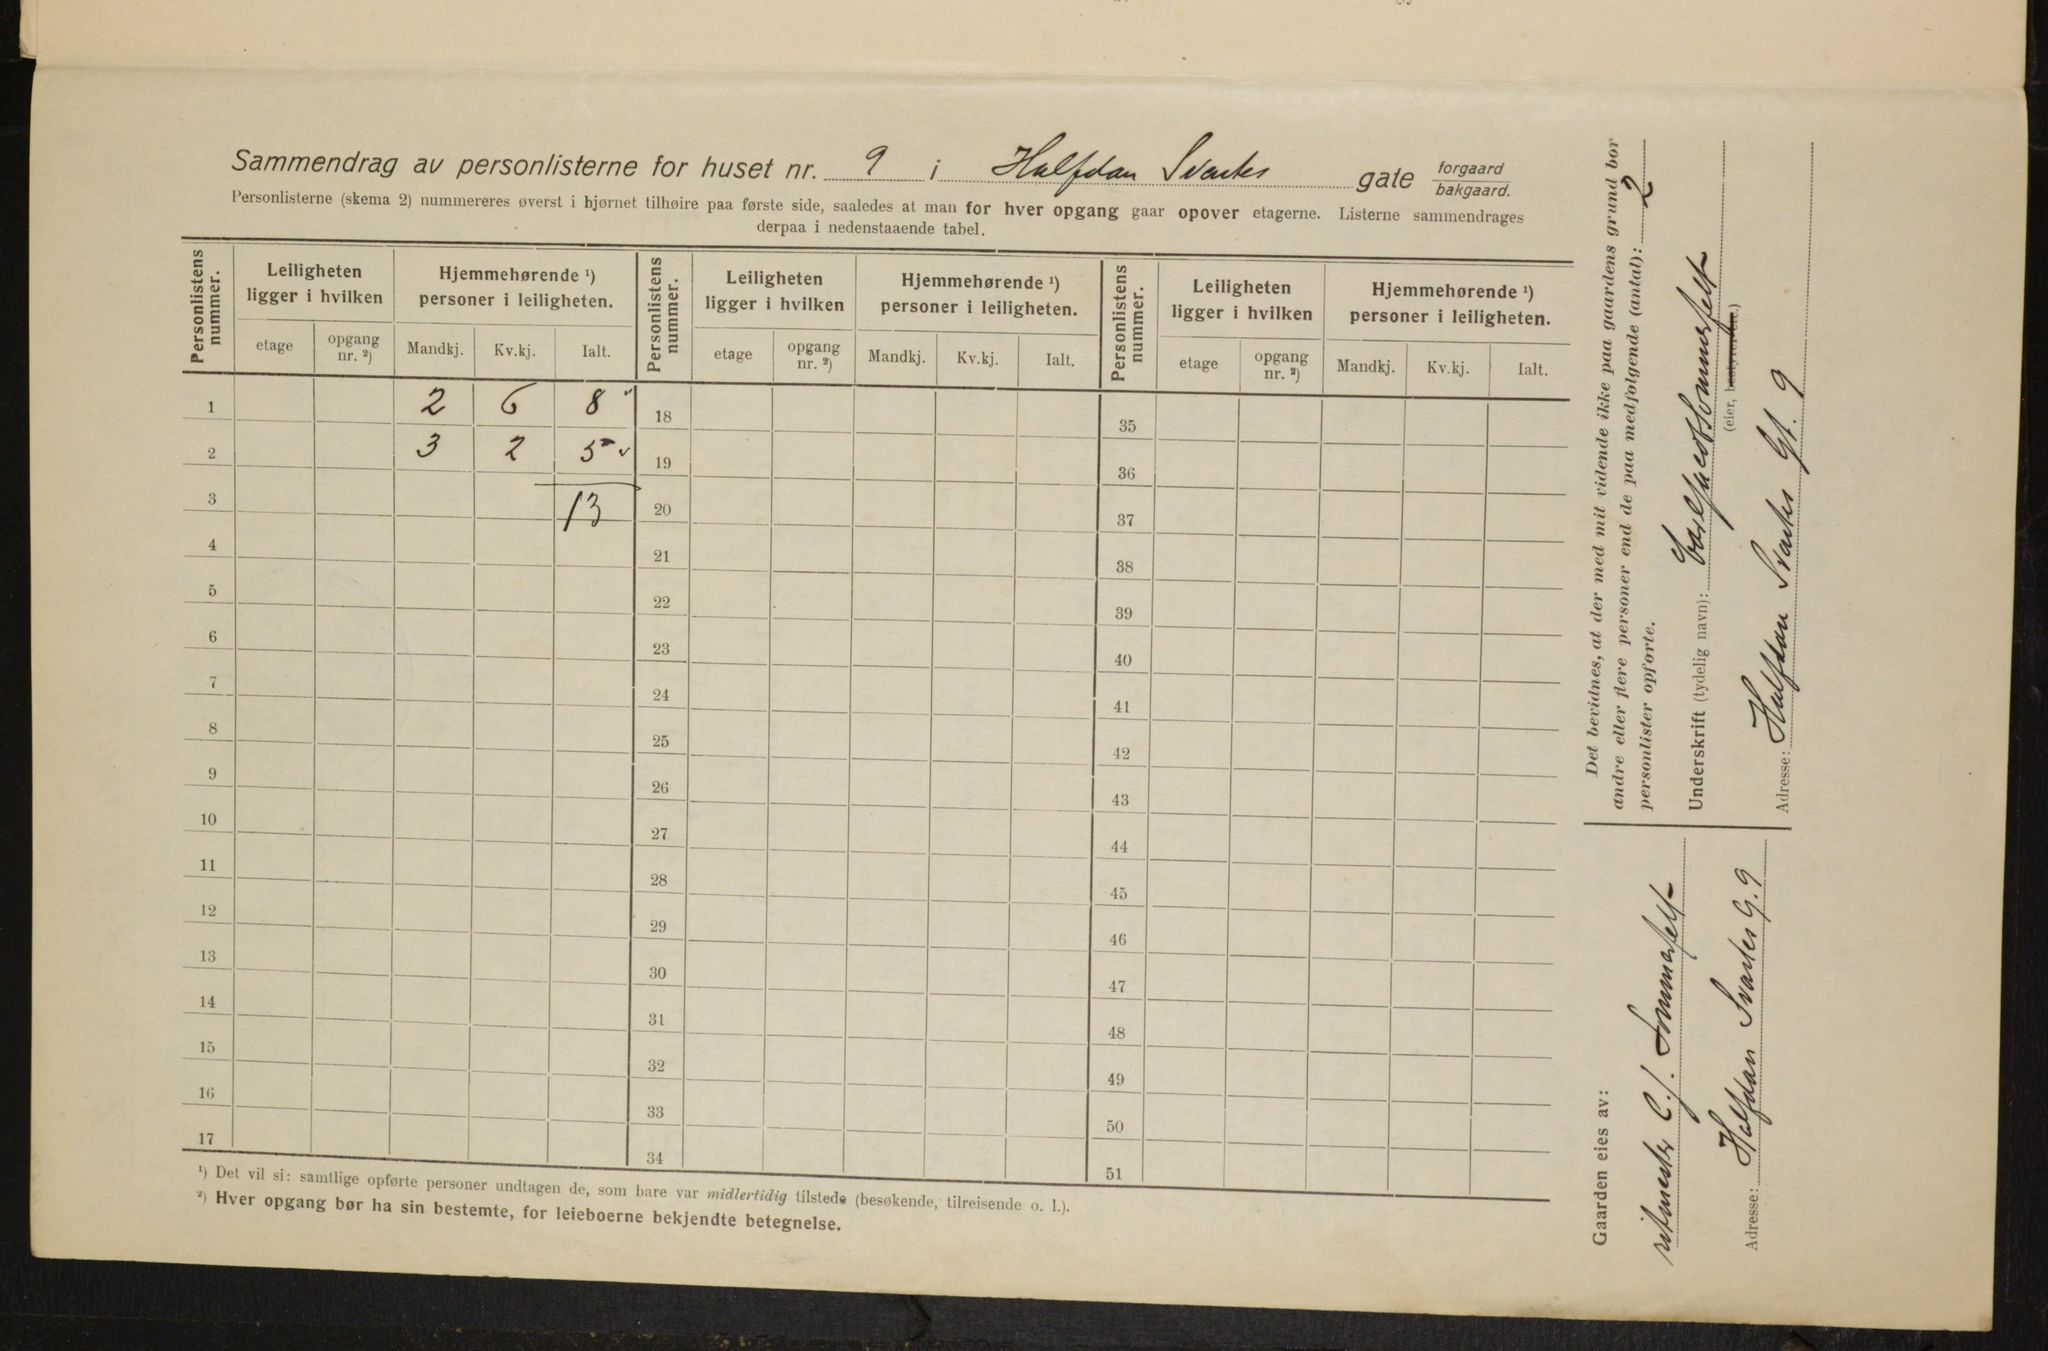 Sammendrag av personlisterne for huset nr. 9 i Halfdan Svartes gate forgaard bakgaard.
Personlisterne (skema 2) nummereres øverst i hjørnet tilhøire paa første side, saaledes at man for hver opgang gaar opover etagerne. Listerne sammendrages
derpaa i nedenstaaende tabel.
Personlistens nummer. Leiligheten ligger i hvilken Hjemmehørende ¹) personer i leiligheten. Personlistens nummer. Leiligheten ligger i hvilken Hjemmehørende ¹) personer i leiligheten. Personlistens nummer. Leiligheten ligger i hvilken Hjemmehørende ¹) personer i leiligheten.
etage opgang nr. ²) Mandkj. Kv.kj. Ialt. etage opgang nr. ²) Mandkj. Kv.kj. Ialt. etage opgang nr. ²) Mandkj. Kv.kj. Ialt.
1 2 6 8 18 35
2 3 2 5 19 36
3 13 20 37
4 21 38
5 22 39
6 23 40
7 24 41
8 25 42
9 26 43
10 27 44
11 28 45
12 29 46
13 30 47
14 31 48
15 32 49
16 33 50
17 34 51
¹) Det vil si: samtlige opførte personer undtagen de, som bare var midlertidig tilstede (besøkende, tilreisende o. l.).
²) Hver opgang bør ha sin bestemte, for leieboerne bekjendte betegnelse.
Det bevidnes, at der med mit vidende ikke paa gaardens grund bor
andre eller flere personer end de paa medfølgende (antal): 2
personlister opførte.
Underskrift (tydelig navn): Carl Jacob Sommerfelt
(eier, bestyrer etc.)
Adresse: Halfdan Svartes Gt. 9
Gaarden eies av:
ritmester C. J. Sommerfelt
Adresse: Halfdan Svartes G. 9